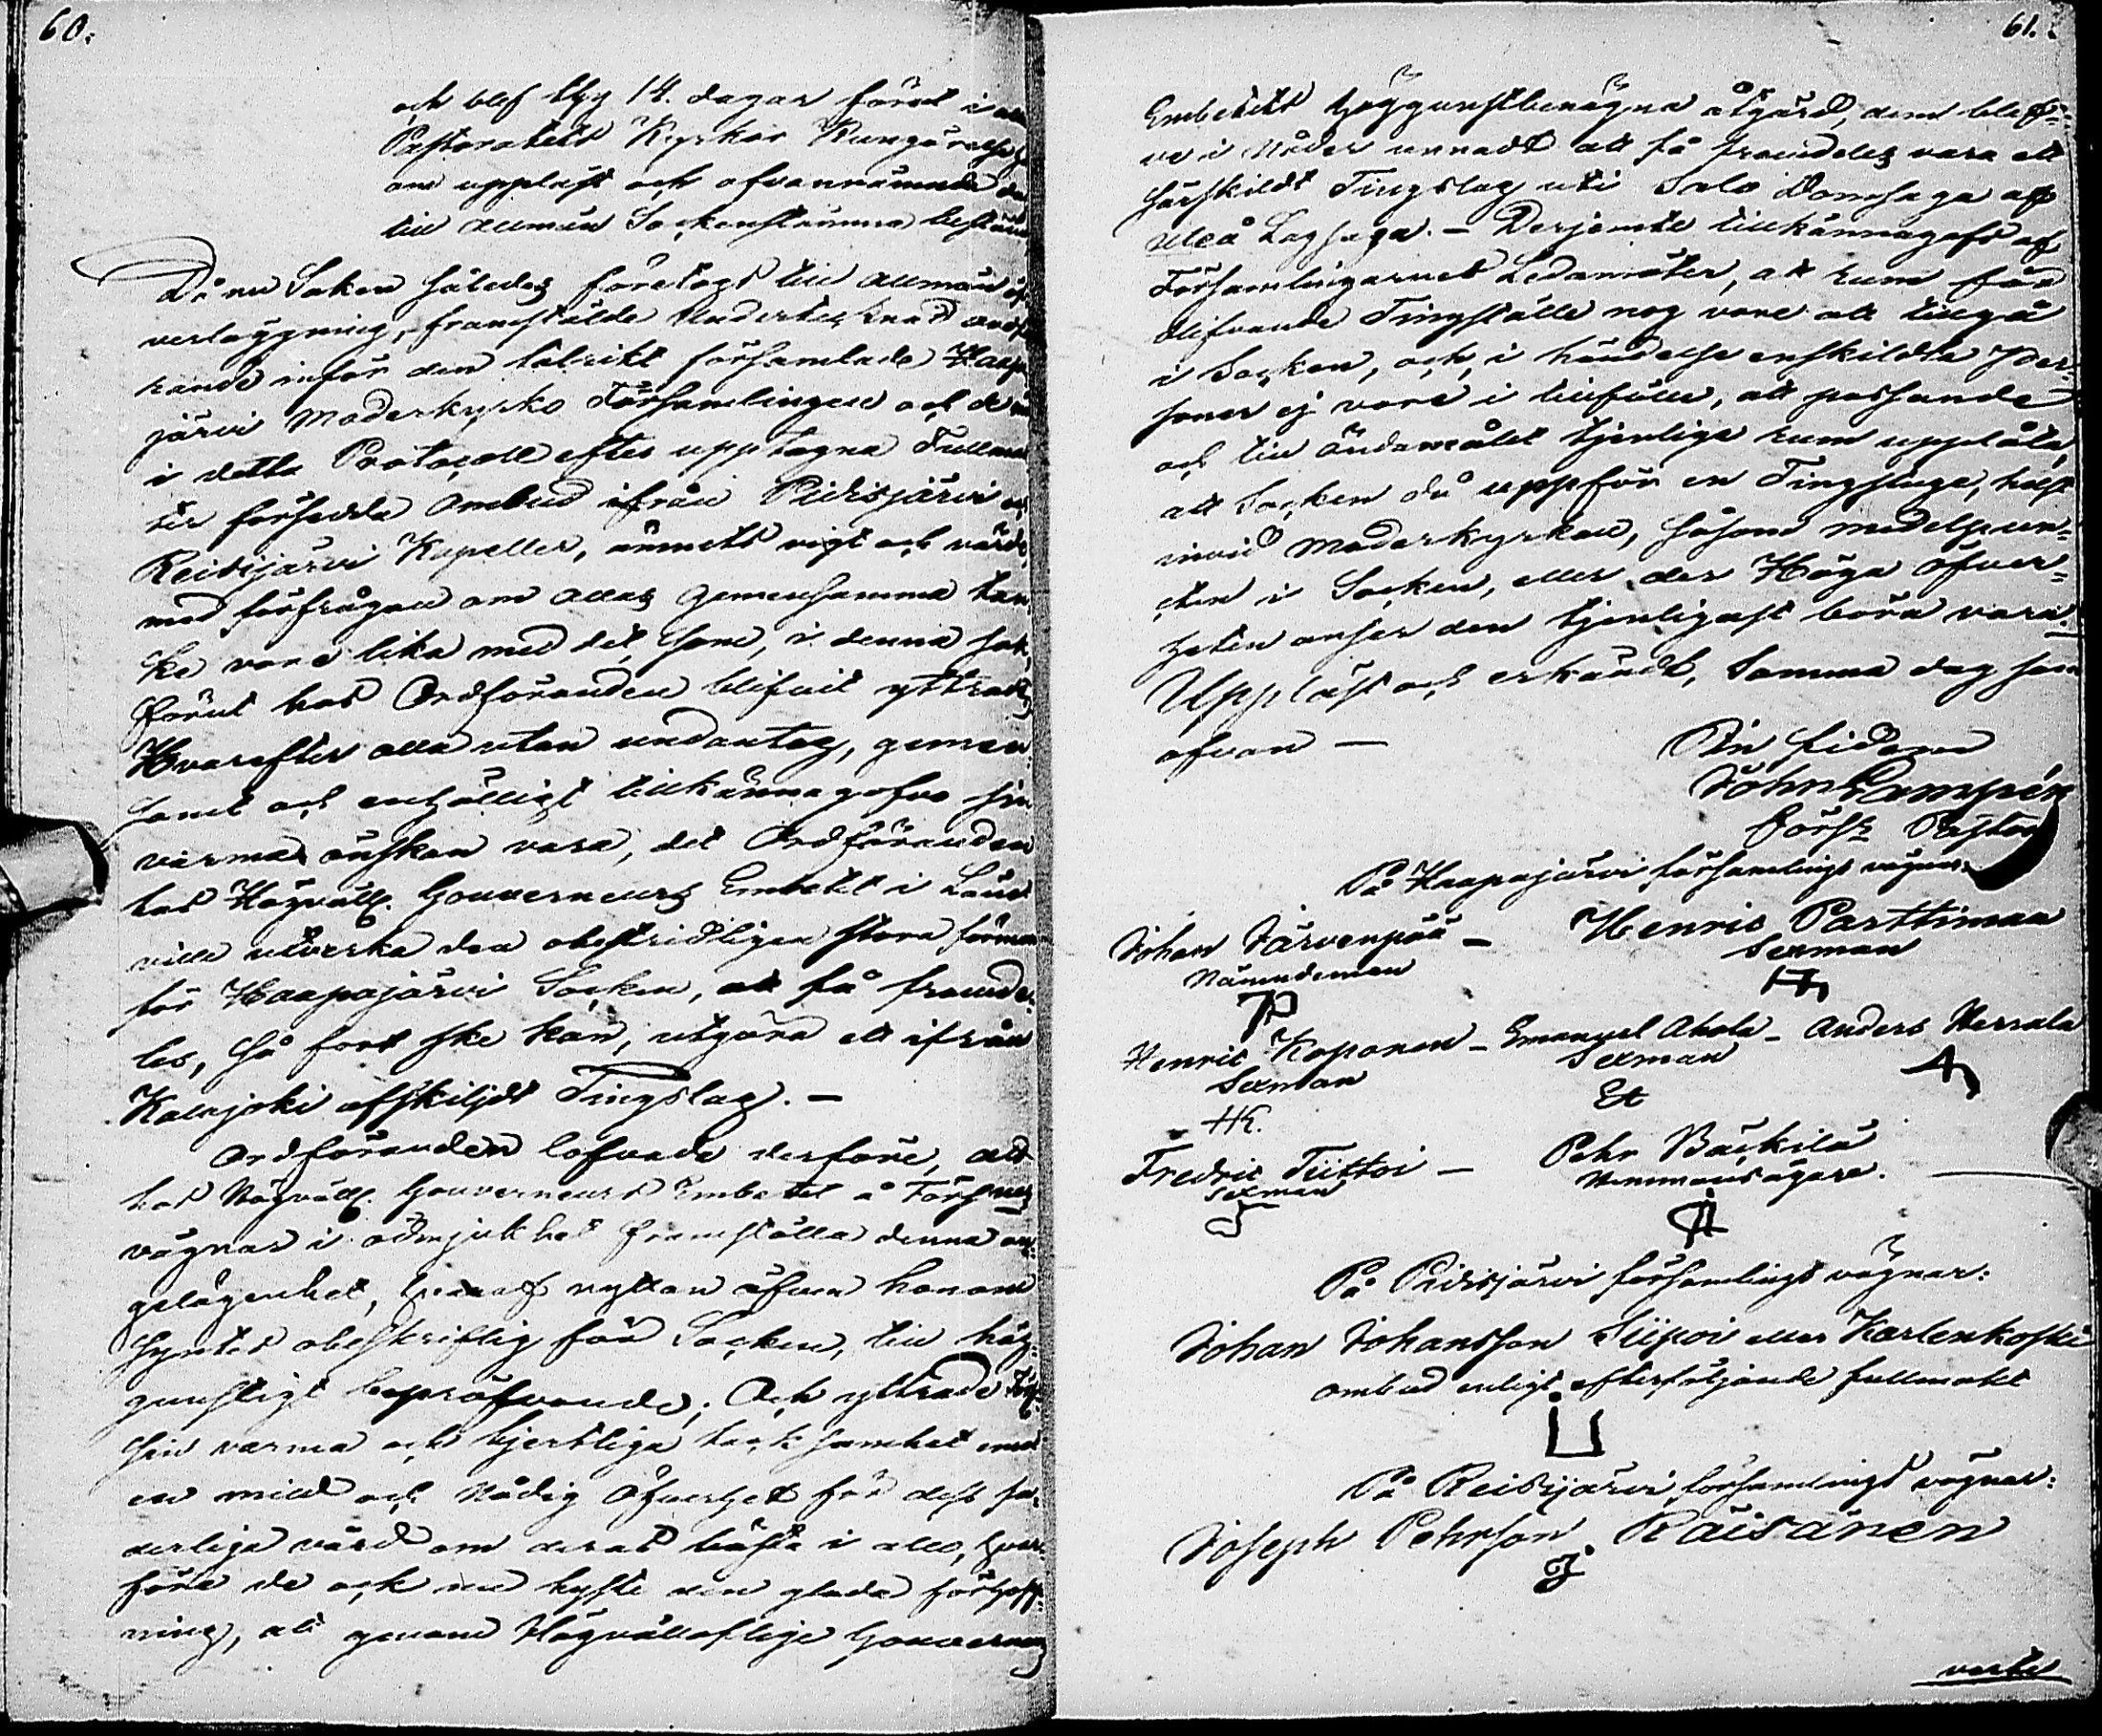 60.
och blef thy 14. dagar förut i alla
Pastoratets Kyrkor Kungörelse här
om uppläst och ofvannämnde dag
till allmän Sockenstämma bestämd
Då nu Saken således företogs till allmän öf
verläggning, framstälde Undertecknad ordfö
rande inför den talrikt församlade Haapa
järvi Moderkyrko Församlingen och de
i detta Protocoll efter upptagna Fullmak
ter försedda Ombud ifrån Pidisjärvi och
Reisijärvi Kapeller, ämnets vigt och värde,
med förfrågan om allas gemensamma tan
ke vore lika med det, som, i denna sak,
förut hos Ordföranden blifvit yttradt,
Hvarefter alla utan undantag, gemen
samt och enhälligt tillkännagofvo sin
varma önskan vara, det Ordföranden
hos Högvälb. Gouverneurs Embetet i Länet
ville utverka den obestridligen stora förmon
för Haapajärvi Socken, att få framde-
les, så fort ske kan, utgöra ett ifrån
Kalajoki afskiljdt Tingslag. —
Ordföranden lofvade derföre, att
hos Högvälb. Gouverneurs Embetet å Förs:nes
vägnar i ödmjukhet framställa denna an-
gelägenhet, hvaraf nyttan äfven honom
syntes obeskriflig för Socken, till hög-
gunstigt bepröfvande; Och yttrade Förs:
sin varma och hjertliga tacksamhet emot
en mild och Nådig Öfverhet för dess fa-
derliga vård om deras bästa i allo, hvar-
före de ock nu hyste den glada förhopp-
ning, att genom Högvälloflige Gouverneurs
61.
Embetets höggunstbenägna åtgärd, dem blef-
ve i Nåder unnadt att få framdeles vara ett
särskildt Tingslag uti Salo Domsaga af
Uleå Lagsaga. — Derjemte tillkännagafs af
Församlingarnes Ledamöter, att rum för
blifvande Tingställe nog vore att tillgå
i Socken, och, i händelse enskildte Per-
soner ej vore i tillfälle, att passande
och till ändamålet tjenliga rum upplåta,
att Socken då uppför en Tingstuga, helst
invid Moderkyrkan, såsom medelpun-
cten i Socken, eller der Höga Öfver-
heten anser den tjenligast böra vara.
Uppläst och erkändt, Samma dag som
ofvan —
In fidem
Johan Lampén
Förs: Pastor
På Haapajärvi församlings vägnar:
Johan Järvenpää — Henric Parttiman
Nämndeman Sexman
Henric Koponen — Emanuel Ahola — Anders
Sexman Sexman
HK. EA
Fredric Tiittoi — Pehr Bäckilä
Sexman Hemmansägare.
På Pidisjärvi församlings vägnar:
Johan Johansson Siipoi eller Karlenkoski
ombud enligt efterföljande fullmakt
På Reisijärvi församlings vägnar:
Joseph Pehrson Räisänen
verte